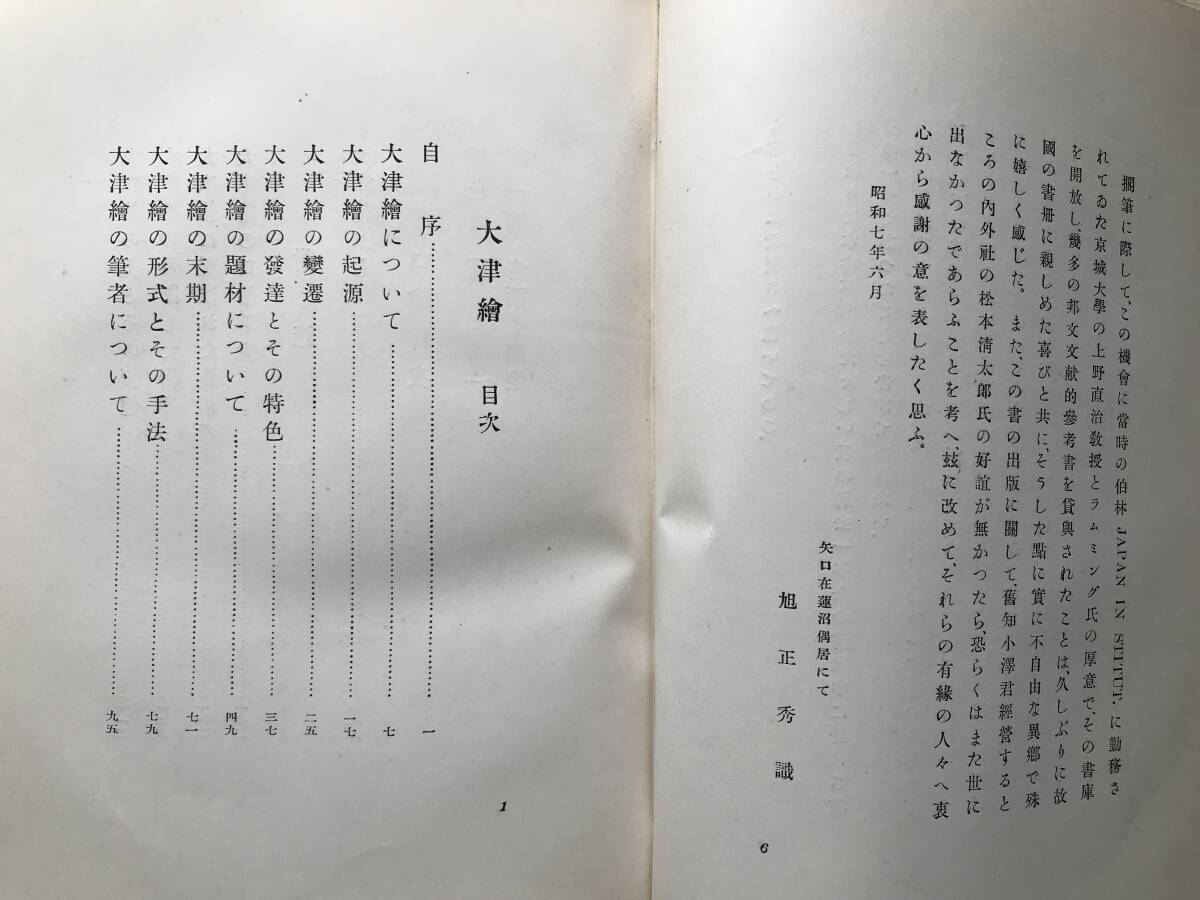 擱筆に際して、この機會に當時の伯林 JAPAN IN STITUT. に勤務さ
れてゐた京城大學の上野直治敎授とラムミング氏の厚意で、その書庫
を開放し、幾多の邦文文献的參考書を貸與されたことは、久しぶりに故
國の書册に親しめた喜びと共に、そうした點に實に不自由な異鄕で殊
に嬉しく感じた。また、この書の出版に關して、舊知小澤君經營すると
ころの內外社の松本淸太郞氏の好誼が無かつたら、恐らくはまた世に
出なかつたであらふことを考へ、玆に改めて、それらの有緣の人々へ衷
心から感謝の意を表したく思ふ。
昭和七年六月
矢口在蓮沼偶居にて
旭正秀識
6
大津繪 目次
自序…………一
大津繪について…………七
大津繪の起源…………一七
大津繪の變遷…………二五
大津繪の發達とその特色…………三七
大津繪の題材について…………四九
大津繪の末期…………七一
大津繪の形式とその手法…………七九
大津繪の筆者について…………九五
1